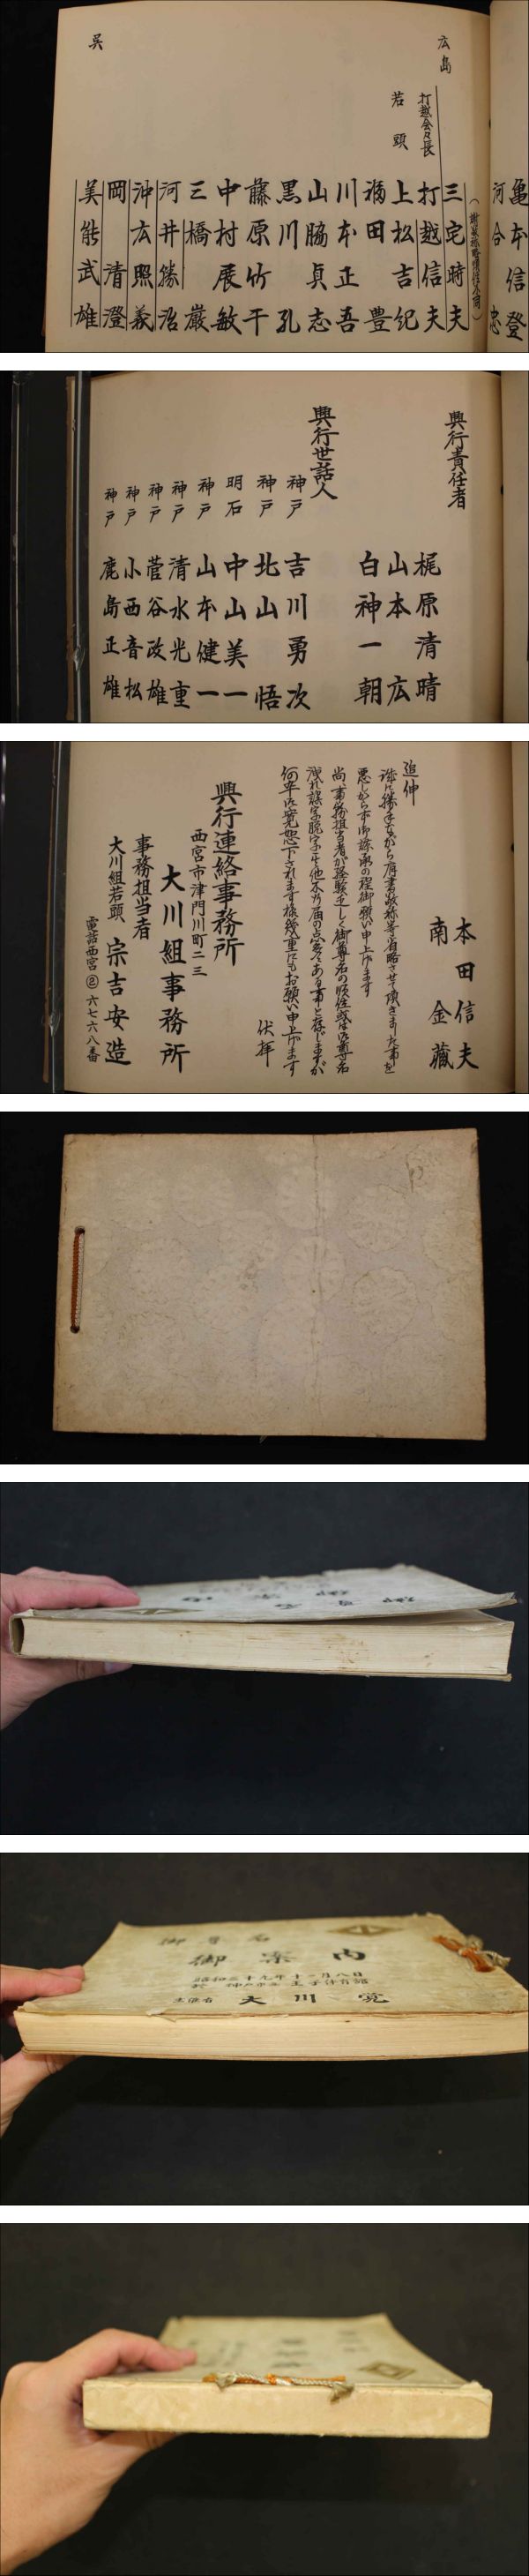 亀本信登
河合 忠
広島
三宅時夫
打越会々長 打越信夫
若頭 上松吉紀
福田 豊
川本正吾
山脇貞志
黒川 孔
藤原竹千
中村展敏
三橋 巌
河井勝治
沖広照義
岡 清澄
呉 美能武雄
興行責任者
梶原清晴
山本 広
白神一朝
興行世話人
神戸 吉川勇次
神戸 北山 悟
明石 中山美一
神戸 山本健一
神戸 清水光重
神戸 菅谷政雄
神戸 小西音松
神戸 鹿島正雄
本田信夫
南 金藏
追伸
誠に勝手ながら肩書敬称等省略させて頂きました事を
悪しからず御諒承の程御願い申上げます
尚、事務担当者が経験乏しく御尊名の順位或は御尊名
洩れ誤字脱字其他不行届の点多々ある事と存じますが
何卒御寛恕下されます様幾重にもお願い申上げます
伏拝
興行連絡事務所
西宮市津門川町二三
大川組事務所
事務担当者
大川組若頭 宗吉安造
電話西宮②六七六八番
御尊名
御案内
昭和三十九年十一月八日
於 神戸市立王子体育館
主催者 大川 覚